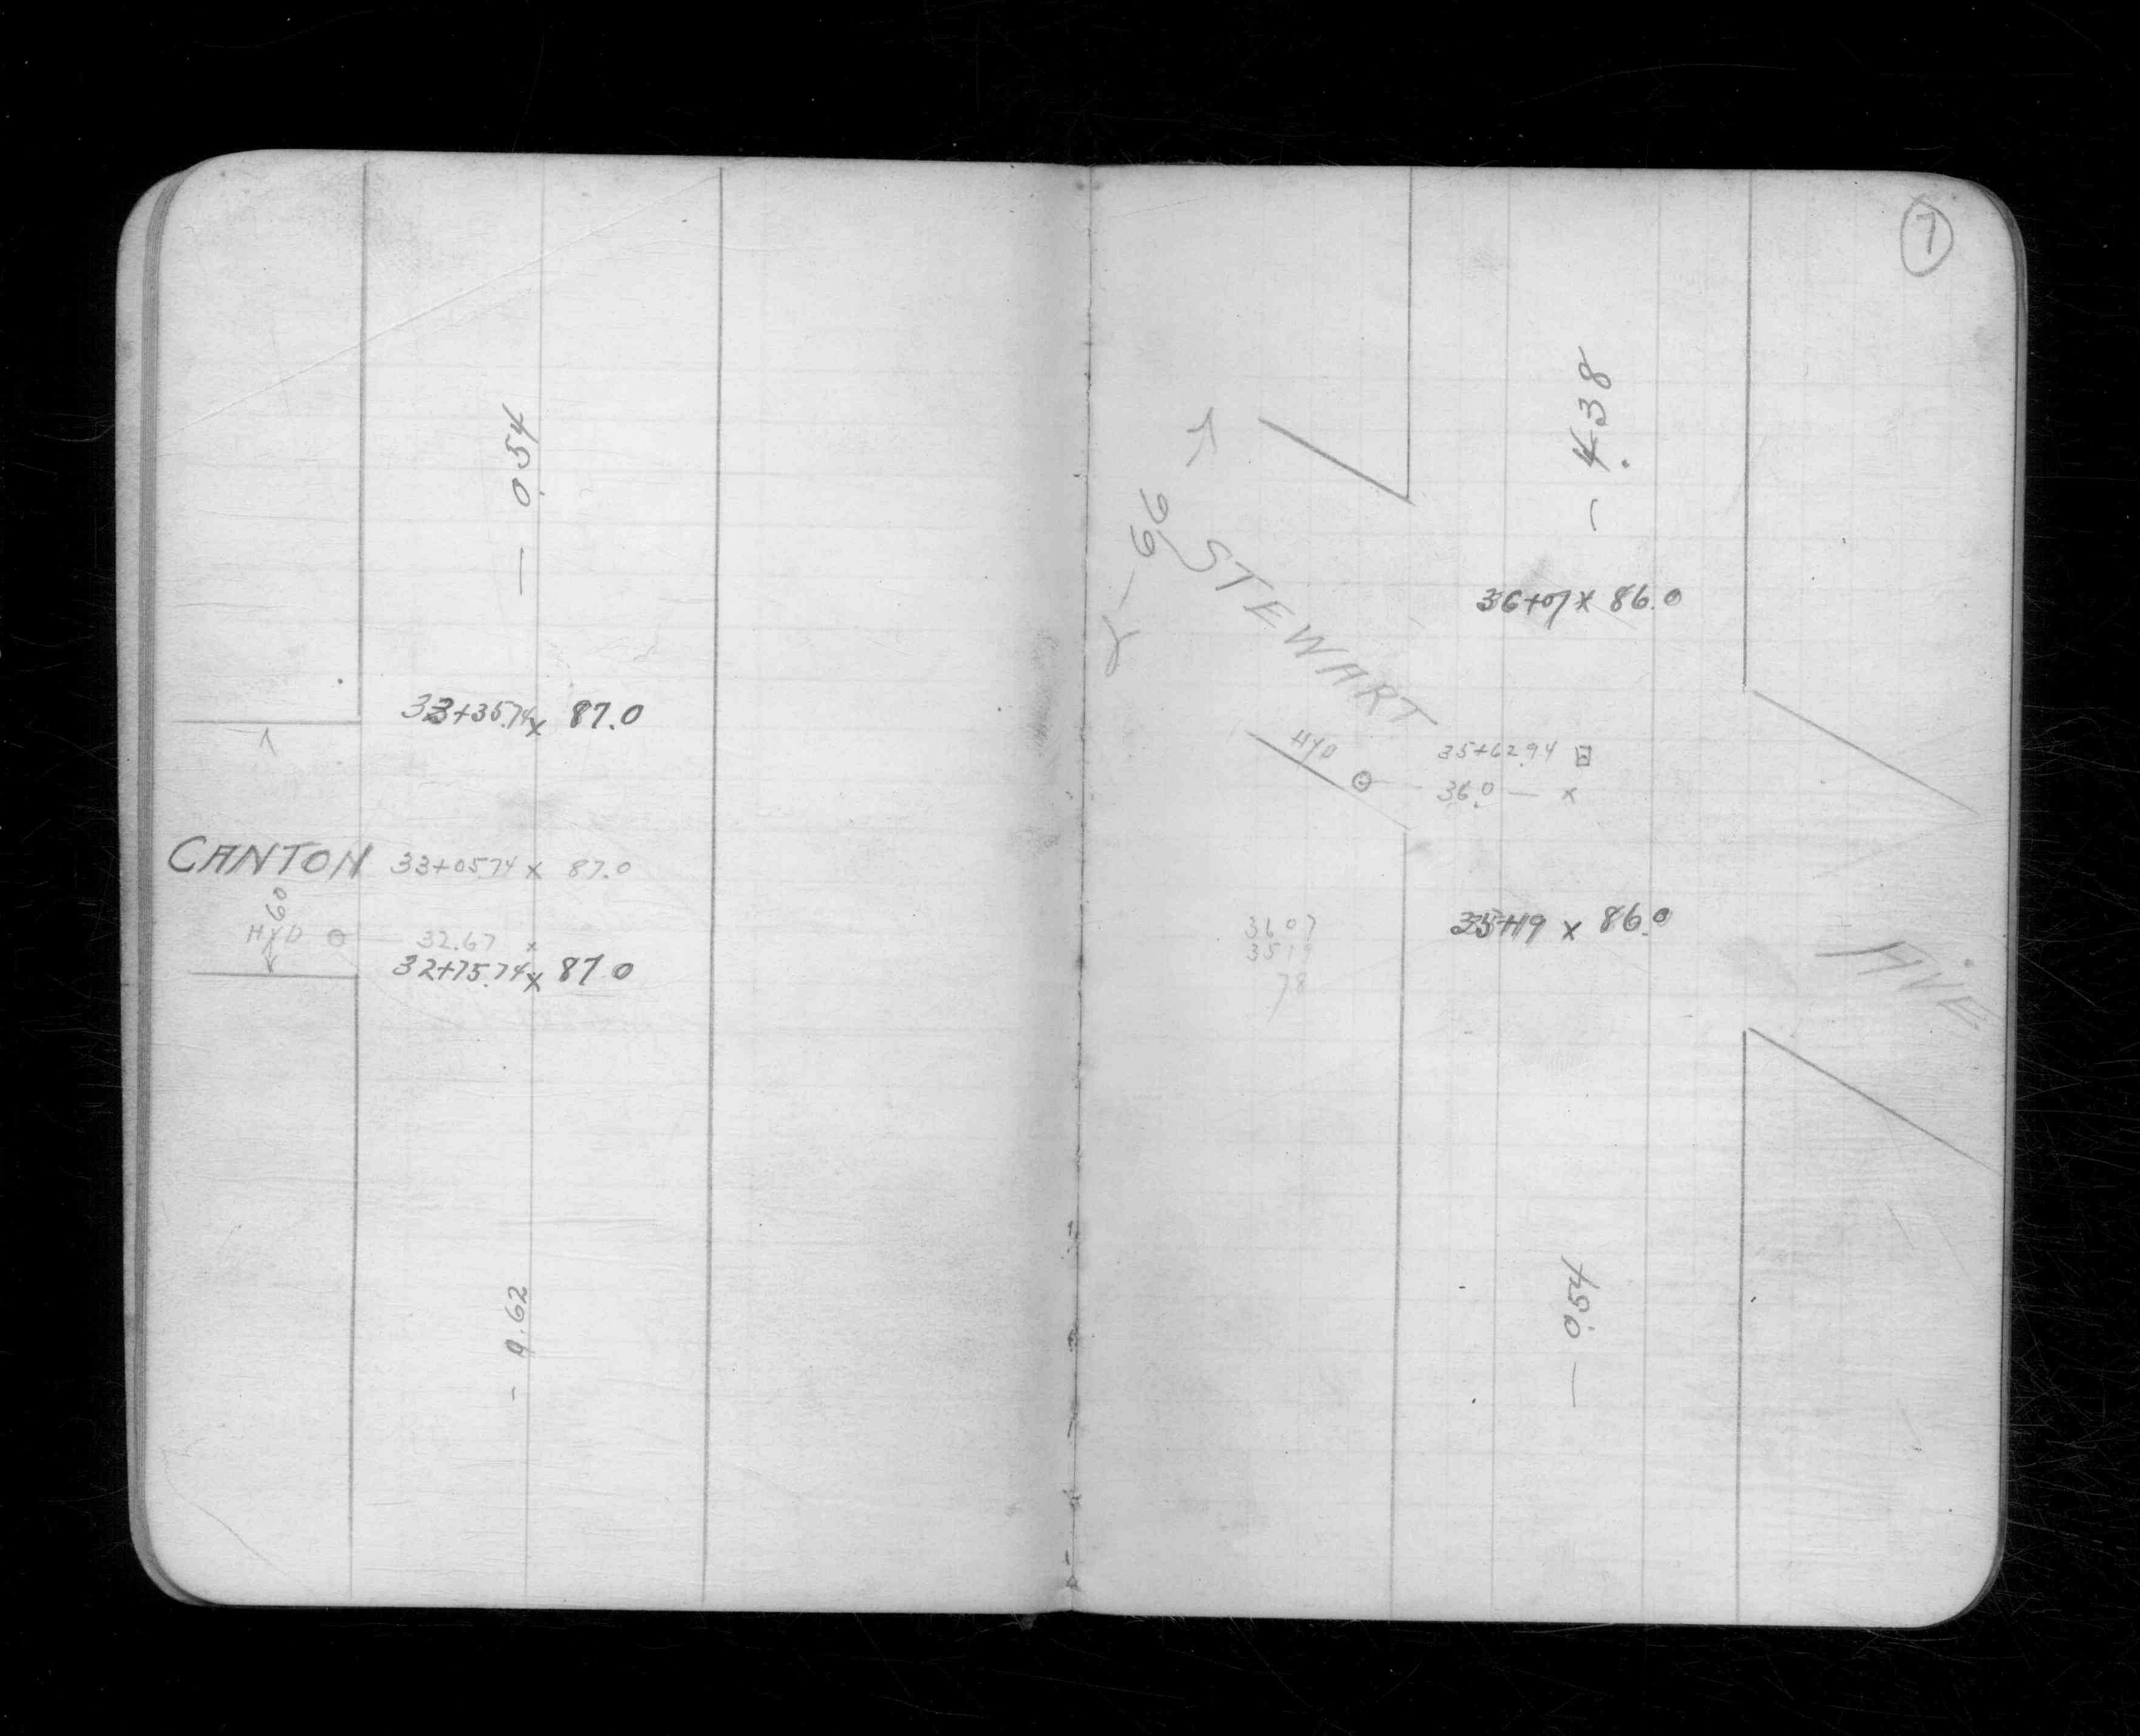 — 0.54
33+35.74 x 87.0
CANTON 33+05.74 x 87.0
60
HYD 32.67 x
32+75.74 x 87.0
7
— 4.38
66
STEWART
36+07 x 86.0
HYD 35+62.94
36.0 — x
3607
78
x 86.0
AVE.
— 0.54